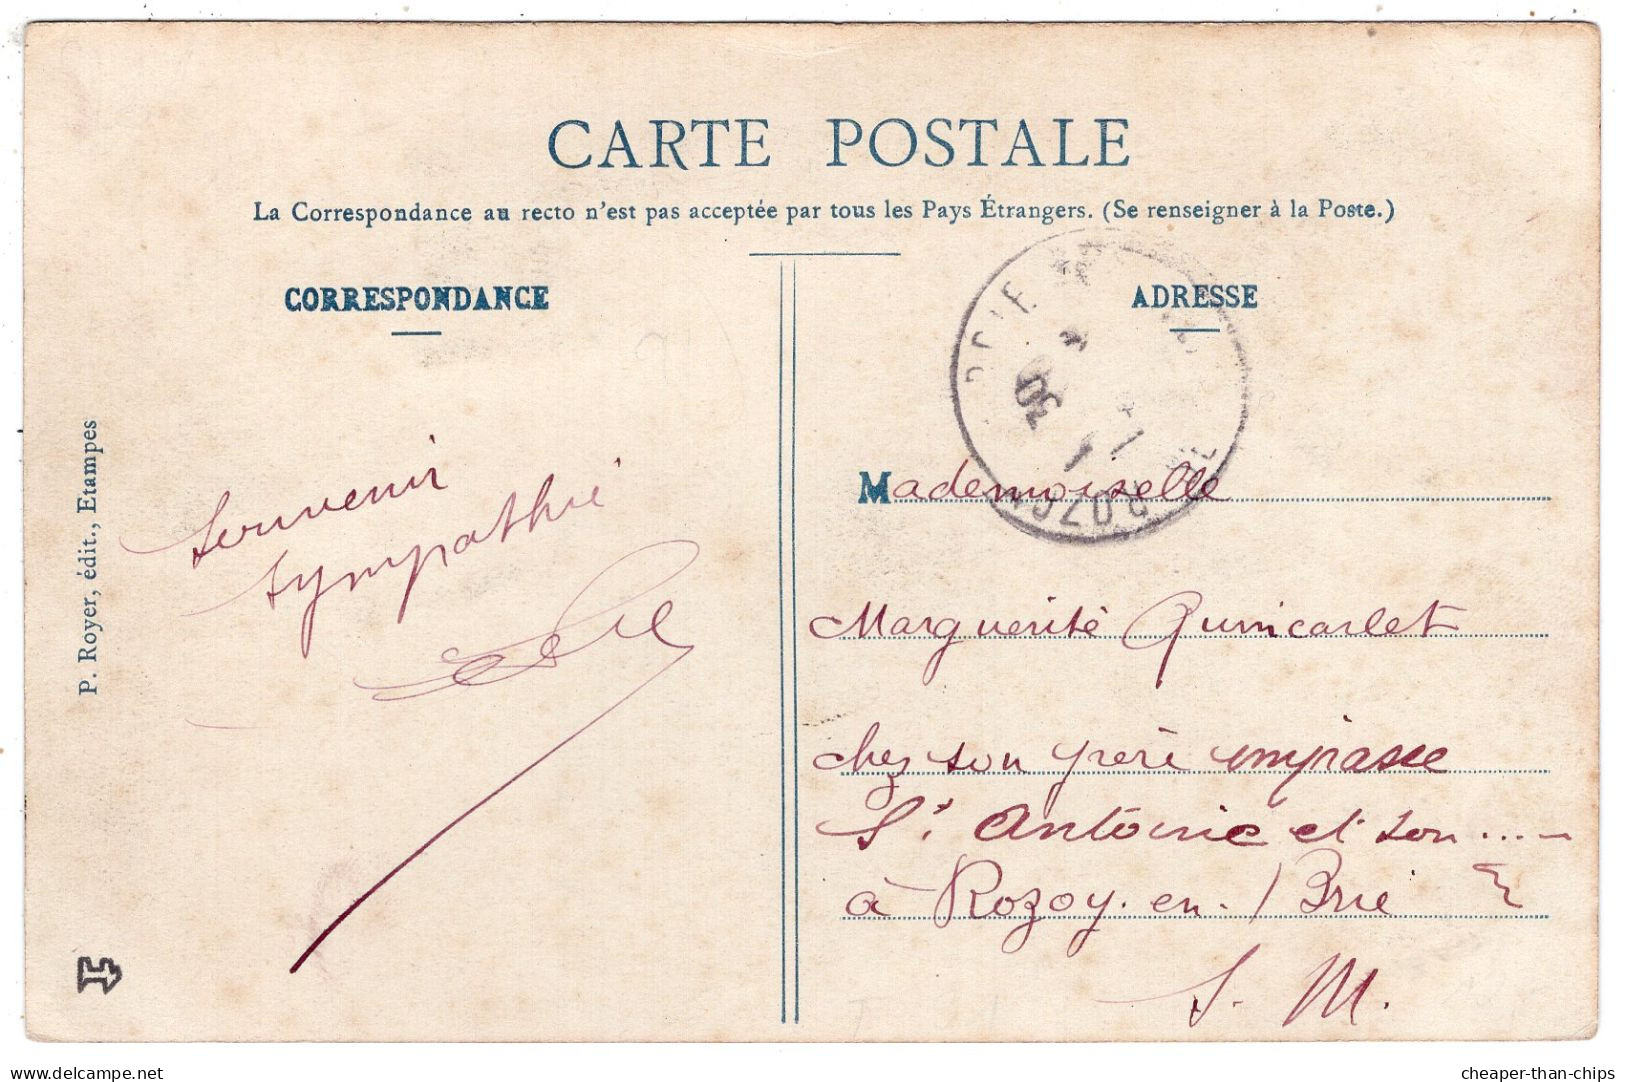 CARTE POSTALE
La Correspondance au recto n'est pas acceptée par tous les Pays Étrangers. (Se renseigner à la Poste.)
CORRESPONDANCE
ADRESSE
P. Royer, édit., Etampes
Souvenir
sympathie
Mademoiselle
Marguerite Quincarlet
chez son frère impasse
St Antoine et son ....
à Rozoy-en-Brie
S. M.
cheaper-than-chips